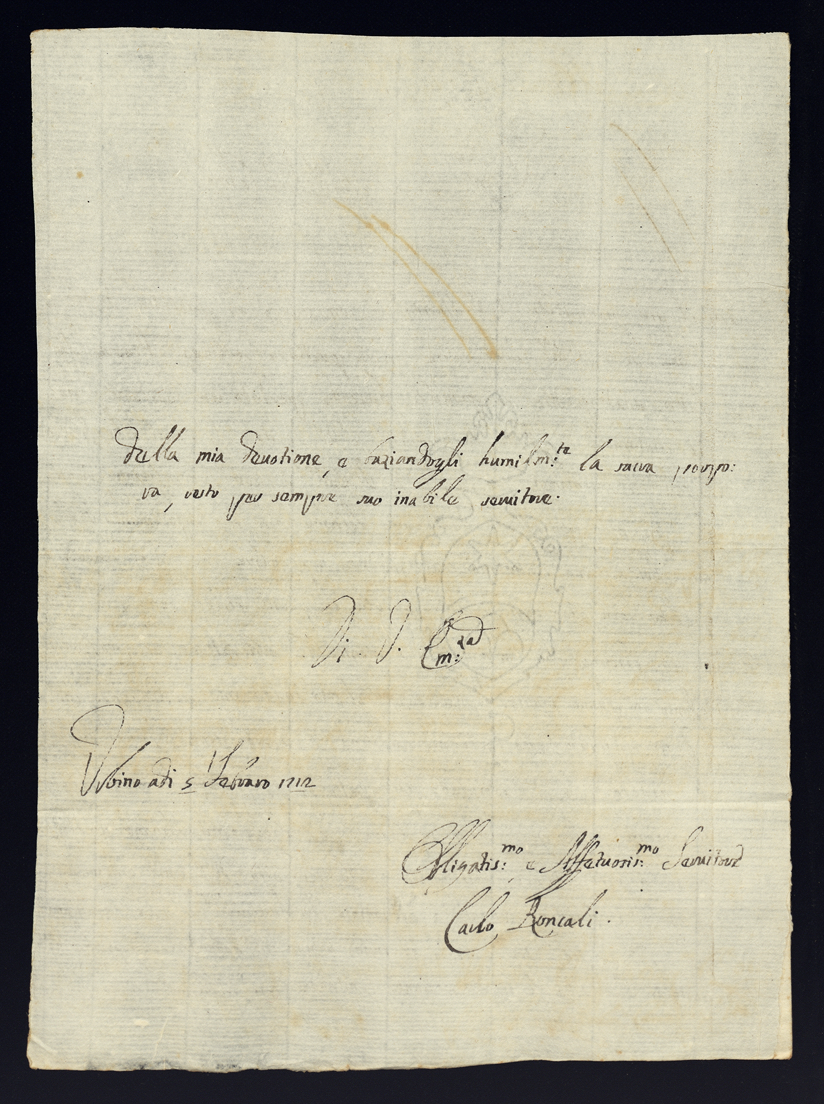 della mia deuotione, e baziandogli humilm:te la sacra porpo:
ra, resto per sempre suo inabile seruitore.
Di V. Em:za
Vrbino adi 5 Febraro 1712
Obligatis:mo e Affetuosis:mo Seruitore
Carlo Roncali.